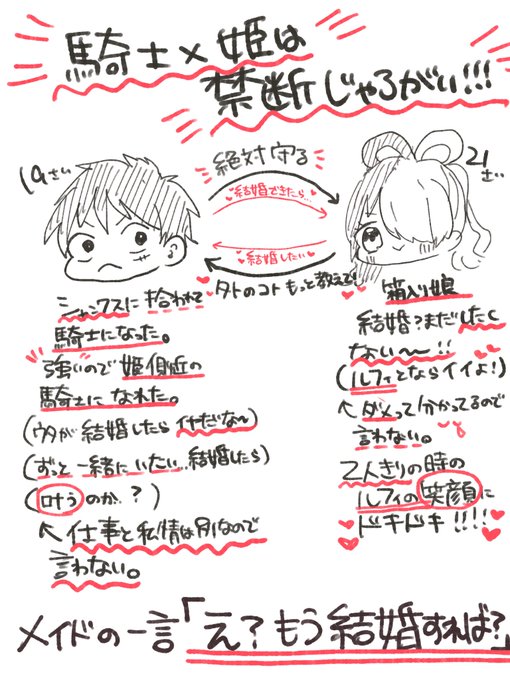 騎士×姫は
禁断じゃろがい!!!
絶対守る
19さい
21さい
結婚できたら…
結婚したい
外のコトもっと教えて!
シャンクスに拾われて
騎士になった。
強いので姫側近の
騎士になれた。
(ウタが結婚したらイヤだな〜)
(ずっと一緒にいたい…結婚したら)
(叶うのか?)
↖仕事と私情は別なので
言わない。
箱入り娘
結婚?まだしたく
ない〜!!
(ルフィとならイイよ!)
↖ダメって分かってるので
言わない。
2人きりの時の
ルフィの笑顔に
ドキドキ!!!!
メイドの一言「え?もう結婚すれば?」